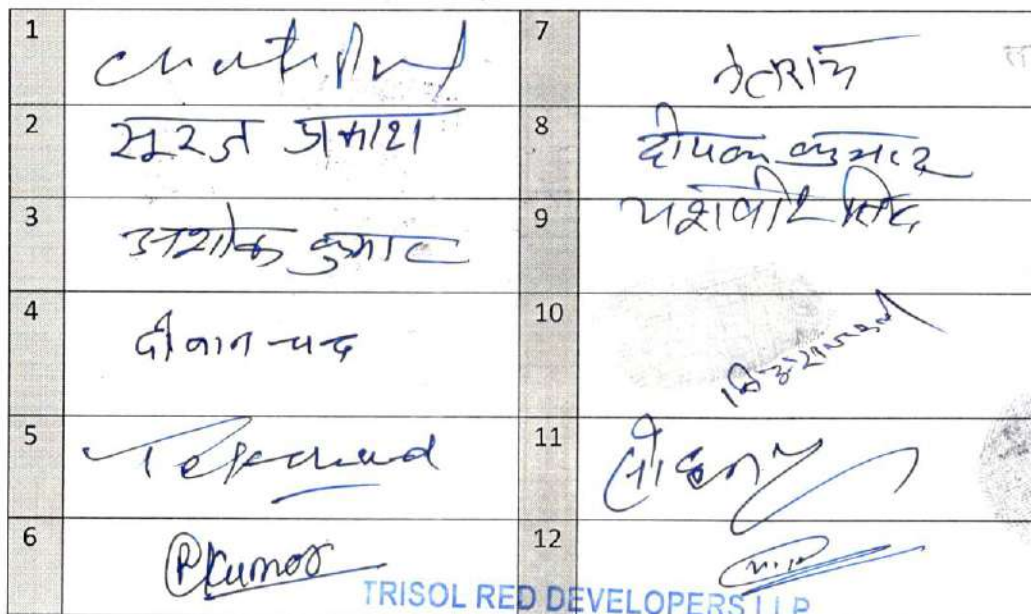 1
7
नेतराम
2
सूरज प्रकाश
8
दीपक कुमार
3
अशोक कुमार
9
यशवीर सिंह
4
दीवान चन्द
10
5
Tekchand
11
6
P Kumar
12
TRISOL RED DEVELOPERS LLP